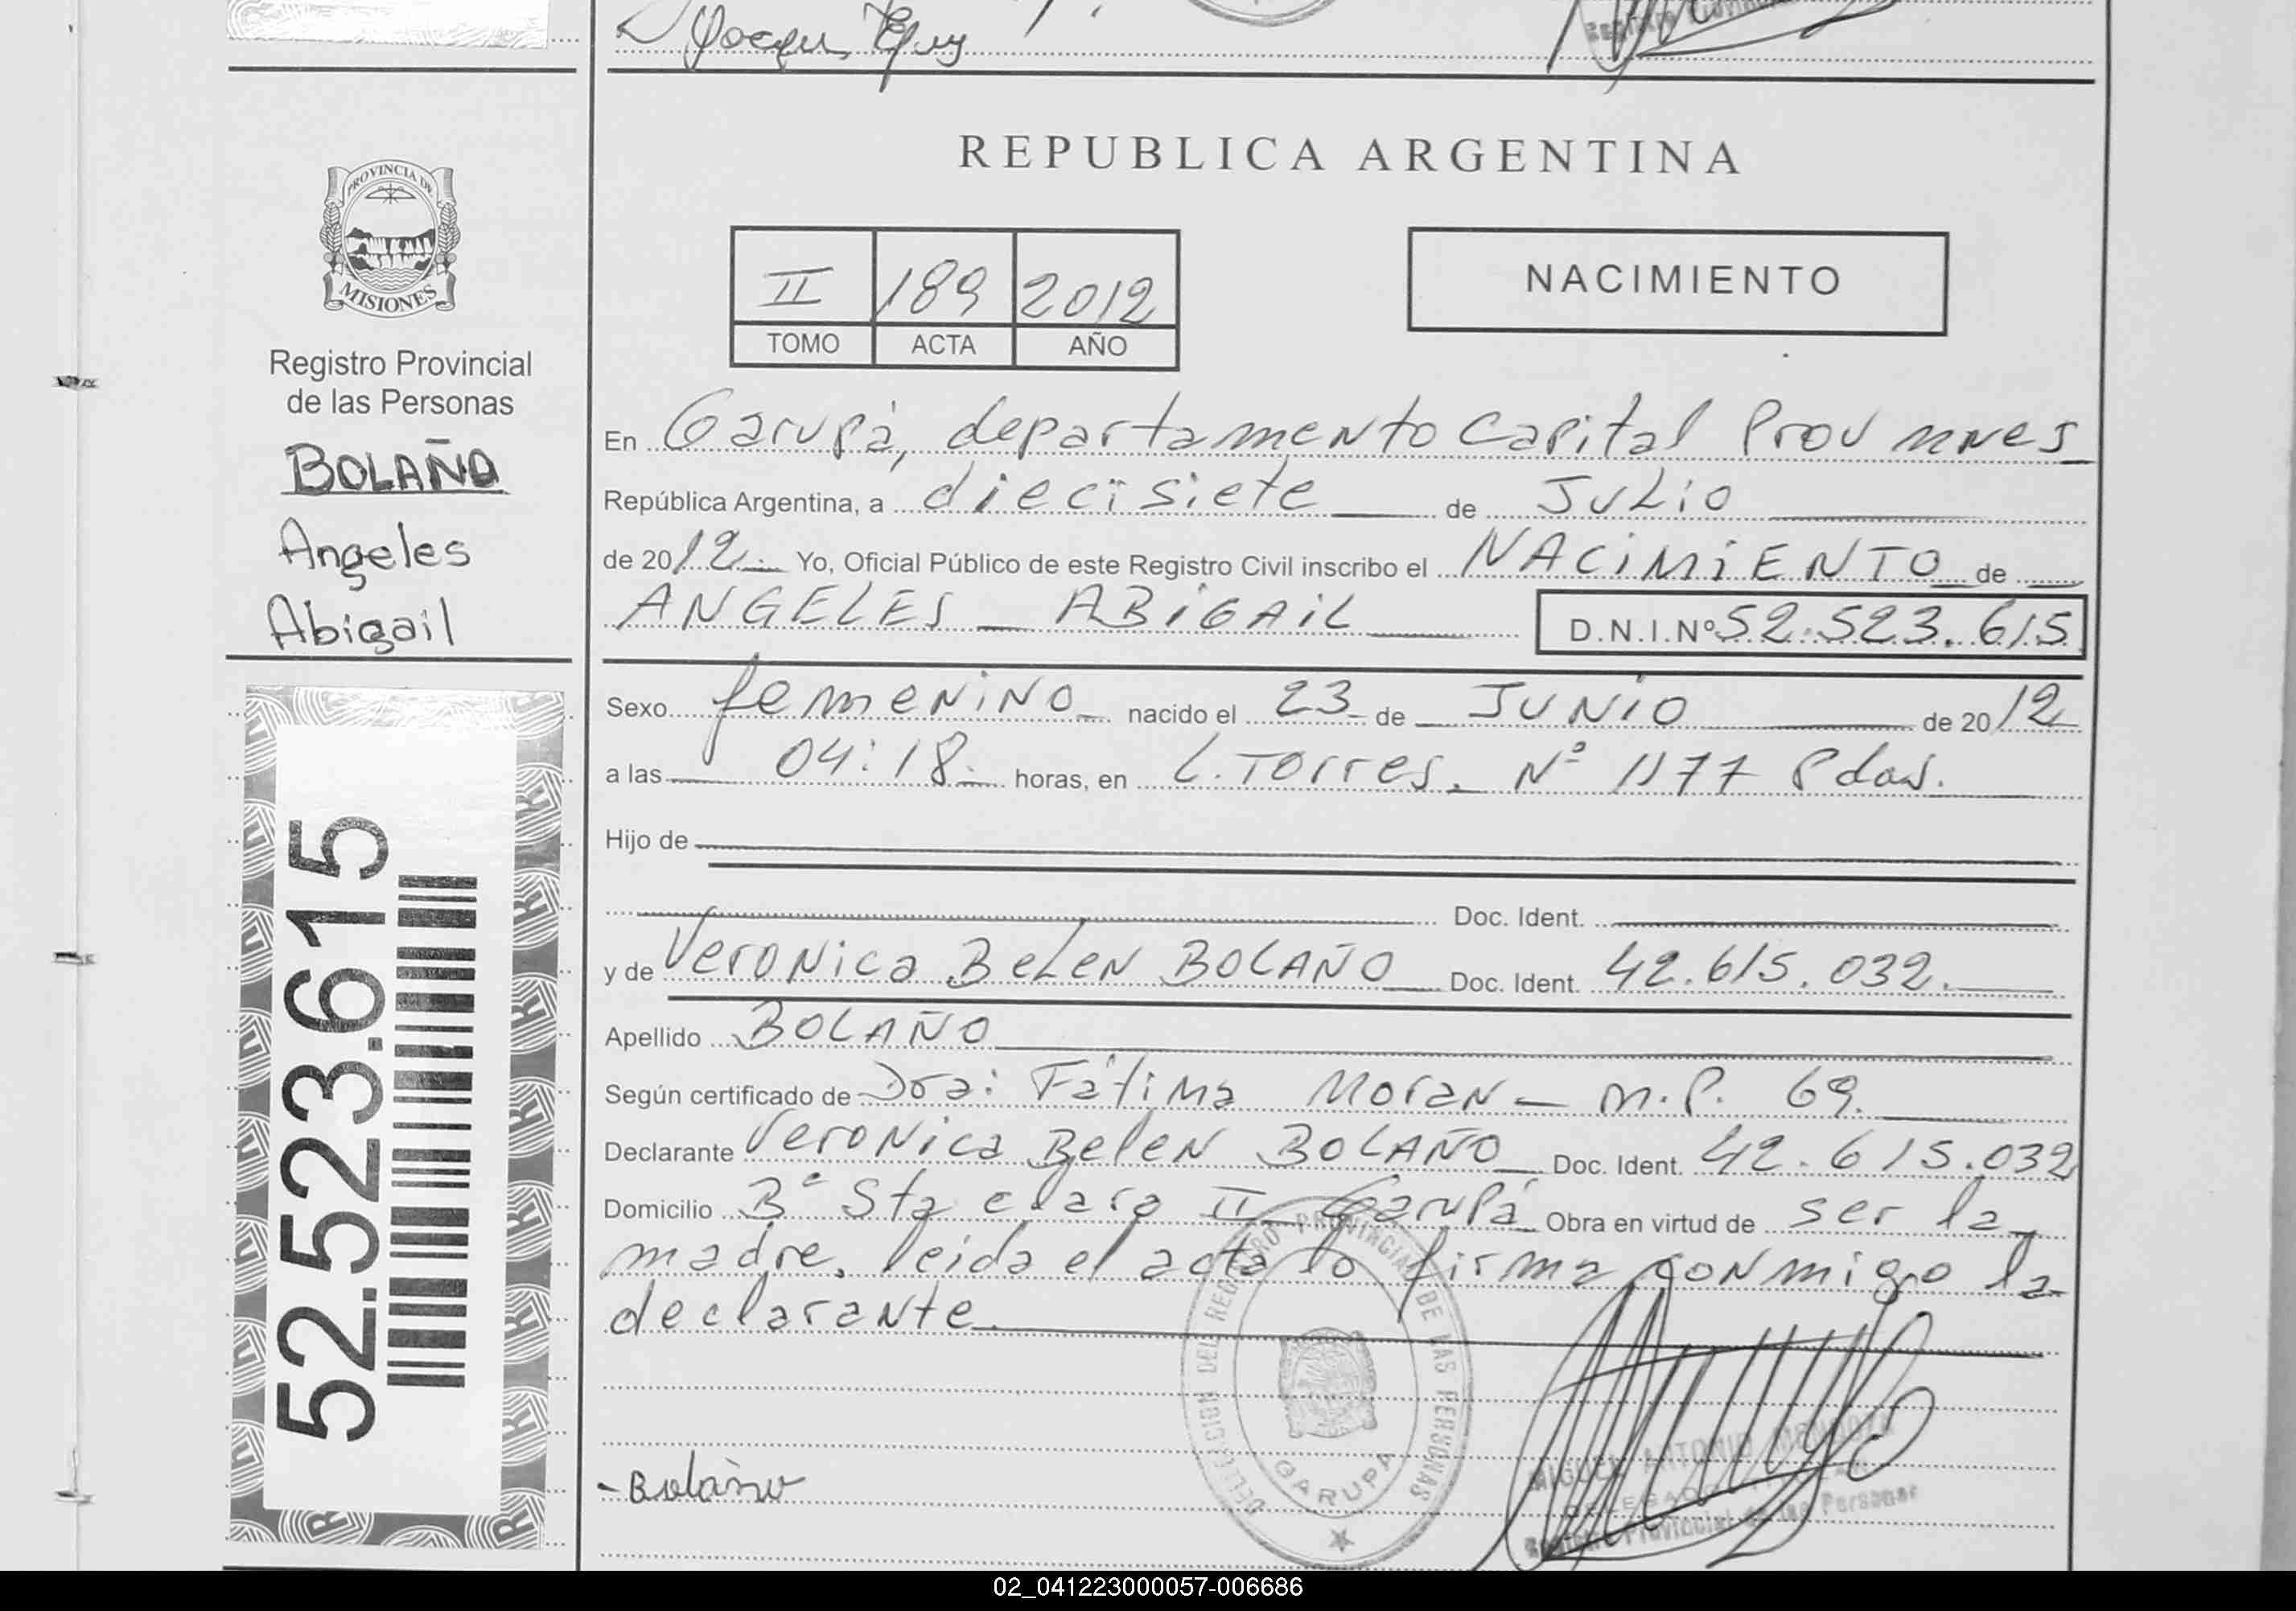 PROVINCIA DE
MISIONES
Registro Provincial
de las Personas
BOLAÑO
Angeles
Abigail
52.523.615
REPUBLICA ARGENTINA
II 189 2012
TOMO ACTA AÑO
NACIMIENTO
En Garupá, departamento Capital Prov mnes
República Argentina, a diecisiete de Julio
de 2012 Yo, Oficial Público de este Registro Civil inscribo el NACIMIENTO de
ANGELES ABIGAIL D.N.I.Nº 52.523.615
Sexo femenino nacido el 23 de JUNIO de 2012
a las 04:18 horas, en L. Torres. Nº 1177 Pdas.
Hijo de
Doc. Ident.
y de Veronica Belen BOLAÑO Doc. Ident. 42.615.032.
Apellido BOLAÑO
Según certificado de Dra: Fátima Moran - M.P. 69.
Declarante Veronica Belen BOLAÑO Doc. Ident. 42.615.032
Domicilio Bº Sta clara II Garupá Obra en virtud de ser la
madre. leida el acta lo firma conmigo la
declarante.
DELEGACION DEL REGISTRO PROVINCIAL DE LAS PERSONAS
GARUPA
- Bolaño
MIGUEL ANTONIO MENDOZA
DELEGADO
Registro Provincial de las Personas
02_041223000057-006686